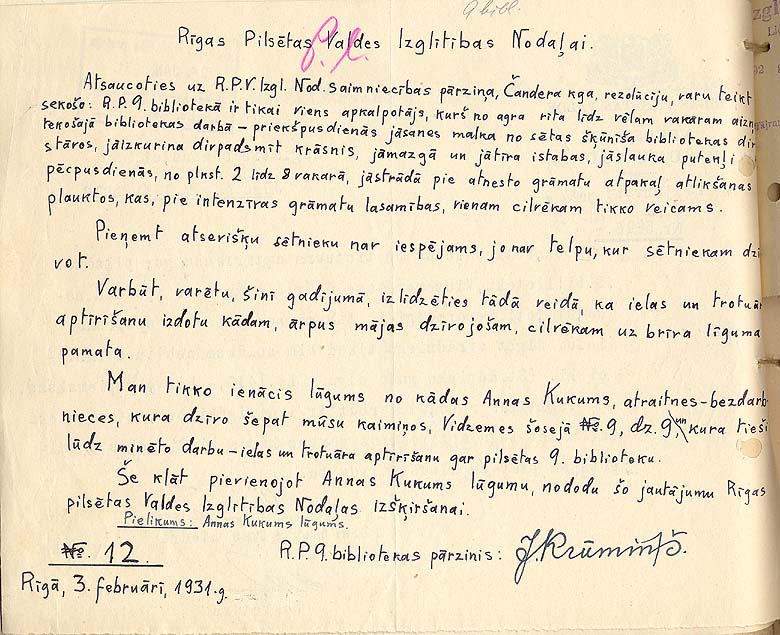 9 bibl.
Rīgas Pilsētas Valdes Izglītības Nodaļai.
Atsaucoties uz R.P.V. Izgl. Nod. saimniecības pārziņa, Čandera kga, rezolūciju, varu teikt
sekošo: R.P. 9. bibliotekā ir tikai viens apkalpotājs, kurš no agra rīta līdz vēlam vakaram aizņ
tekošajā bibliotekas darbā – priekšpusdienās jāsanes malka no sētas šķūnīša bibliotekas dir
stāvos, jāizkurina divpadsmit krāsnis, jāmazgā un jātīra istabas, jāslauka putekļi
pēcpusdienās, no plkst. 2 līdz 8 vakarā, jāstrādā pie atnesto grāmatu atpakaļ atlikšanas
plauktos, kas, pie intenzīvas grāmatu lasamības, vienam cilvēkam tikko veicams.
Pieņemt atsevišķu sētnieku nav iespējams, jo nav telpu, kur sētniekam dzī
vot.
Varbūt, varētu, šinī gadījumā, izlīdzēties tādā veidā, ka ielas un trotuār
aptīrīšanu izdotu kādam, ārpus mājas dzīvojošam, cilvēkam uz brīva līguma
pamata.
Man tikko ienācis lūgums no kādas Annas Kukums, atraitnes-bezdarb
nieces, kura dzīvo šepat mūsu kaimiņos, Vidzemes šosejā №. 9, dz. 9, un kura tieši
lūdz minēto darbu – ielas un trotuāra aptīrīšanu gar pilsētas 9. biblioteku.
Še klāt pievienojot Annas Kukums lūgumu, nododu šo jautājumu Rīgas
pilsētas Valdes Izglītības Nodaļas izšķiršanai.
Pielikums: Annas Kukums lūgums.
№. 12.
R.P. 9. bibliotekas pārzinis: J. Krūmiņš.
Rīgā, 3. februārī, 1931. g.